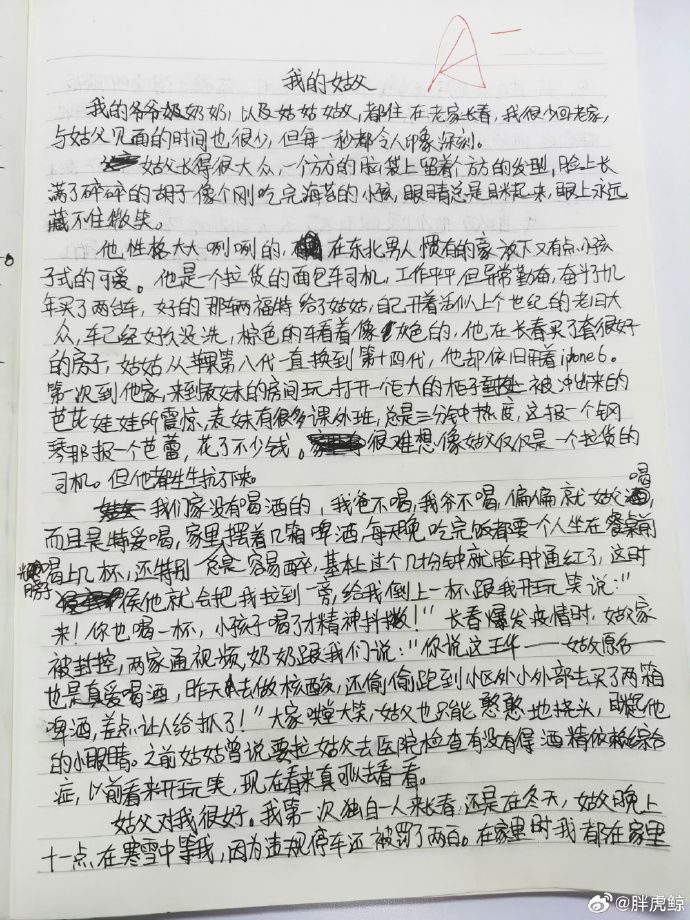 A-
我的姑父
我的爷爷奶奶，以及姑姑姑父，都住在老家长春，我很少回老家，
与姑父见面的时间也很少，但每一秒都令人印象深刻。
姑父长得很大众，一个方方的脑袋上留着个方方的发型，脸上长
满了碎碎的胡子像个刚吃完海苔的小孩，眼睛总是眯起来，眼上永远
藏不住微笑。
他性格大大咧咧的，在东北男人惯有的豪放下又有点小孩
子式的可爱。他是一个拉货的面包车司机，工作平平但异常勤奋，奋斗十几
年买了两台车，好的那辆福特给了姑姑，自己开着活似上个世纪的老旧大
众，车已经好久没洗，棕色的车看着像灰色的，他在长春买了套很好
的房子，姑姑从苹果第八代一直换到第十四代，他却依旧用着iphone6。
第一次到他家，来到表妹的房间玩，打开一巨大的柜子被冲出来的
芭比娃娃所震惊，表妹有很多课外班，总是三分钟热度，这报一个钢
琴那报一个芭蕾，花了不少钱。很难想像姑父仅仅是一个拉货的
司机。但他都生生抗下来。
我们家没有喝酒的，我爸不喝，我爷不喝，偏偏就姑父喝，
而且是特爱喝，家里摆着几箱啤酒，每天晚吃完饭都要一个人坐在餐桌前
喝上几杯，还特别容易醉，基本上过个几分钟就脸肿通红了，这时
候他就会把我拉到一旁，给我倒上一杯，跟我开玩笑说："
来！你也喝一杯，小孩子喝了才精神抖擞！"长春爆发疫情时，姑父家
被封控，两家通视频，奶奶跟我们说："你说这王华——姑父原名——
也是真爱喝酒，昨天去做核酸，还偷偷跑到小区外小外部去买了两箱
啤酒，差点让人给抓了！"大家哄堂大笑，姑父也只能憨憨地挠头，眯起他
的小眼睛。之前姑姑曾说要拉姑父去医院检查有没有得酒精依赖综合
症，以前看来开玩笑，现在看来真可以去看一看。
姑父对我很好。我第一次独自一人来长春，还是在冬天，姑父晚上
十一点在寒雪中等我，因为违规停车还被罚了两百。在家里时我都在家里
@胖虎鲸